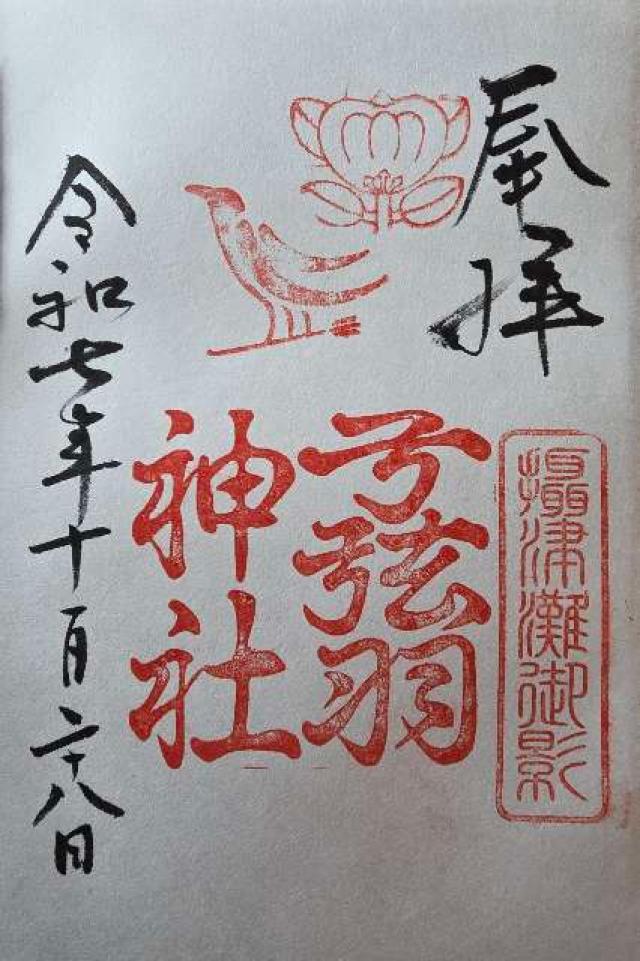 奉拝
摂津灘御影
弓弦羽
神社
令和七年十月二十八日